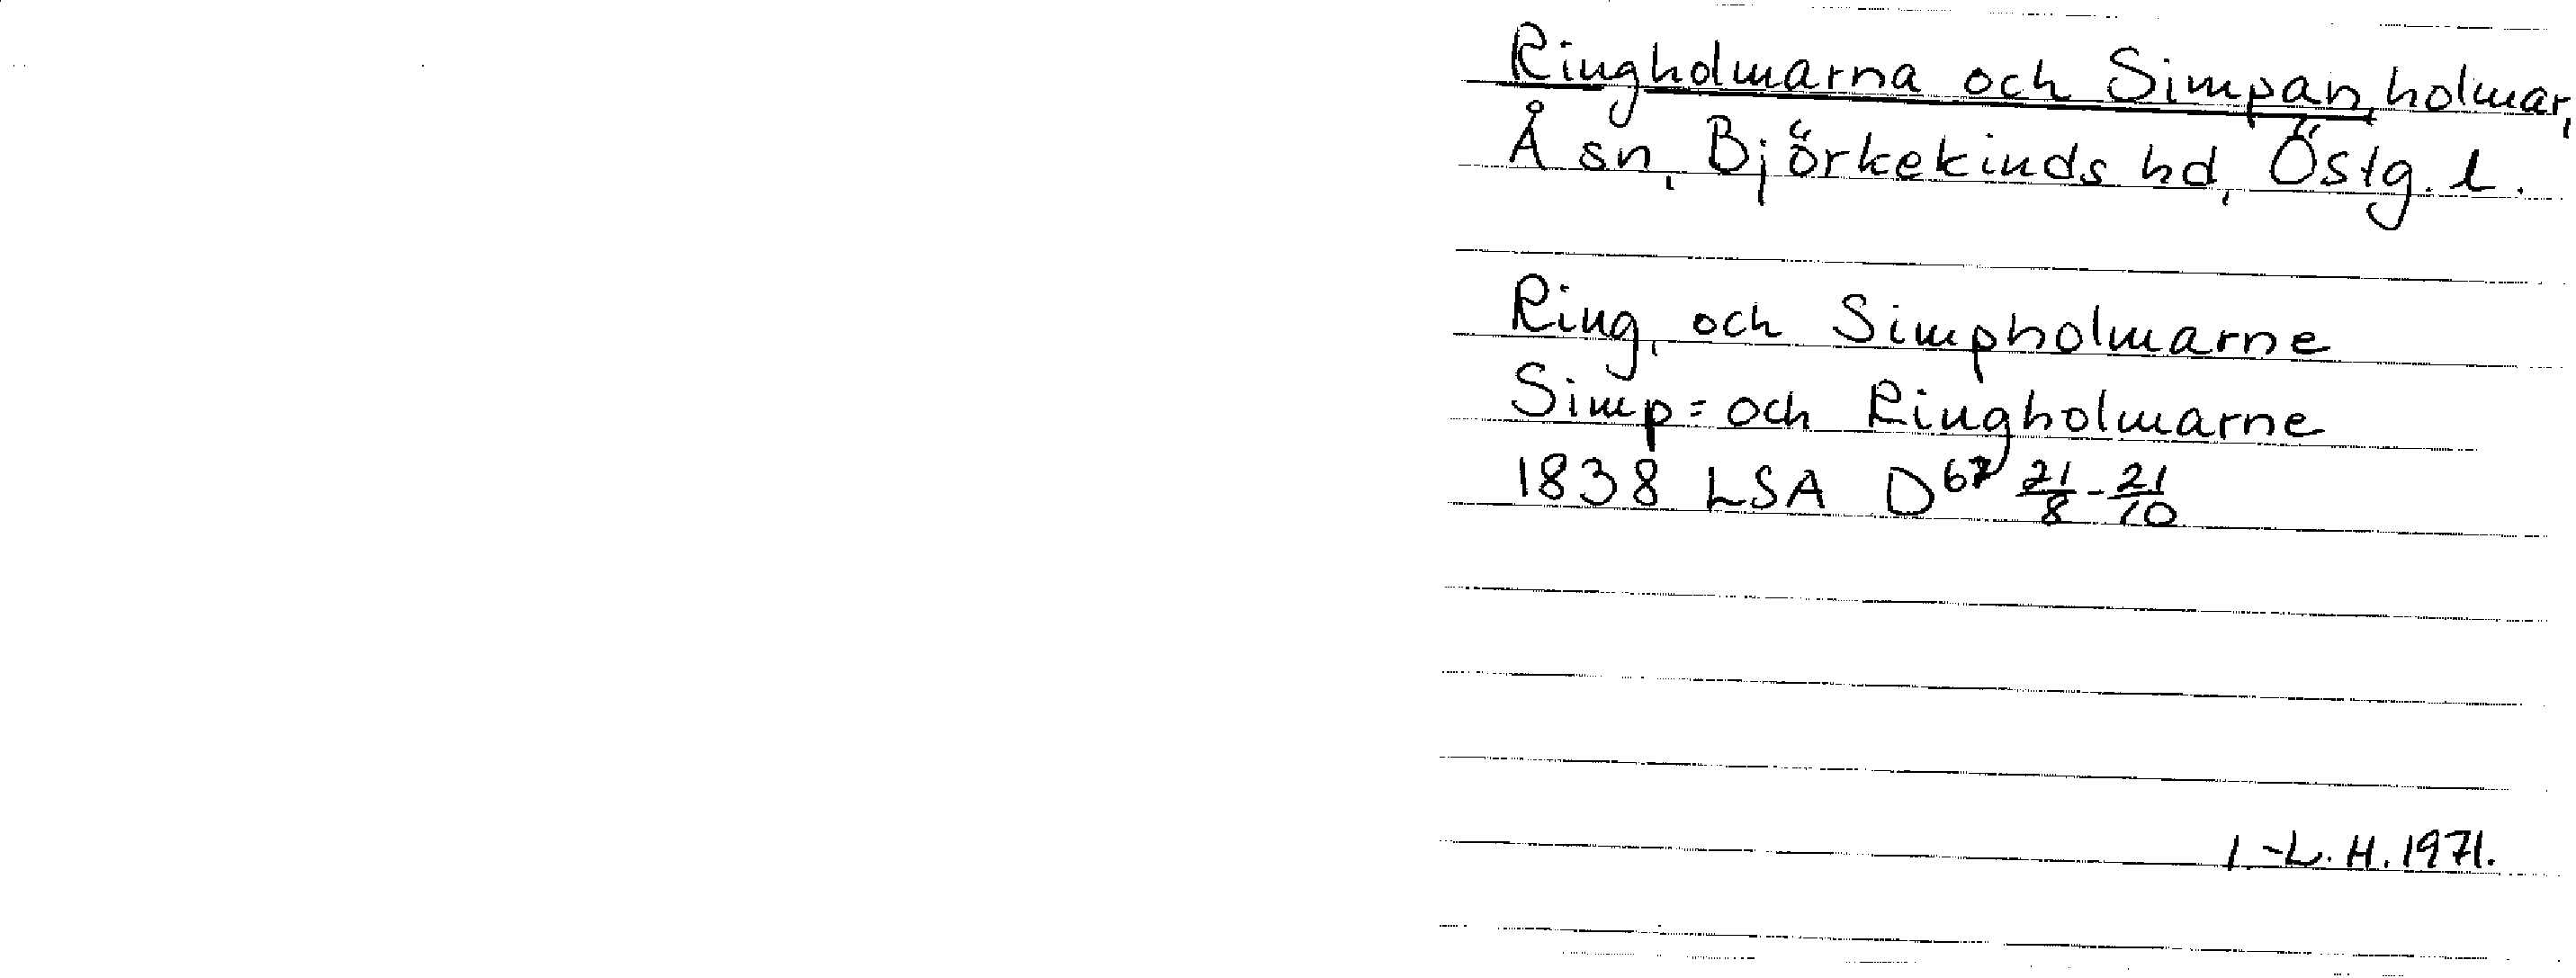 Ringholmarna och Simpan, holmar,
Å sn, Björkekinds hd, Östg. l.
Ring, och Simpholmarne
Simp= och Ringholmarne
1838 LSA D⁶⁷ 21/8 - 21/10
I.-L. H. 1971.